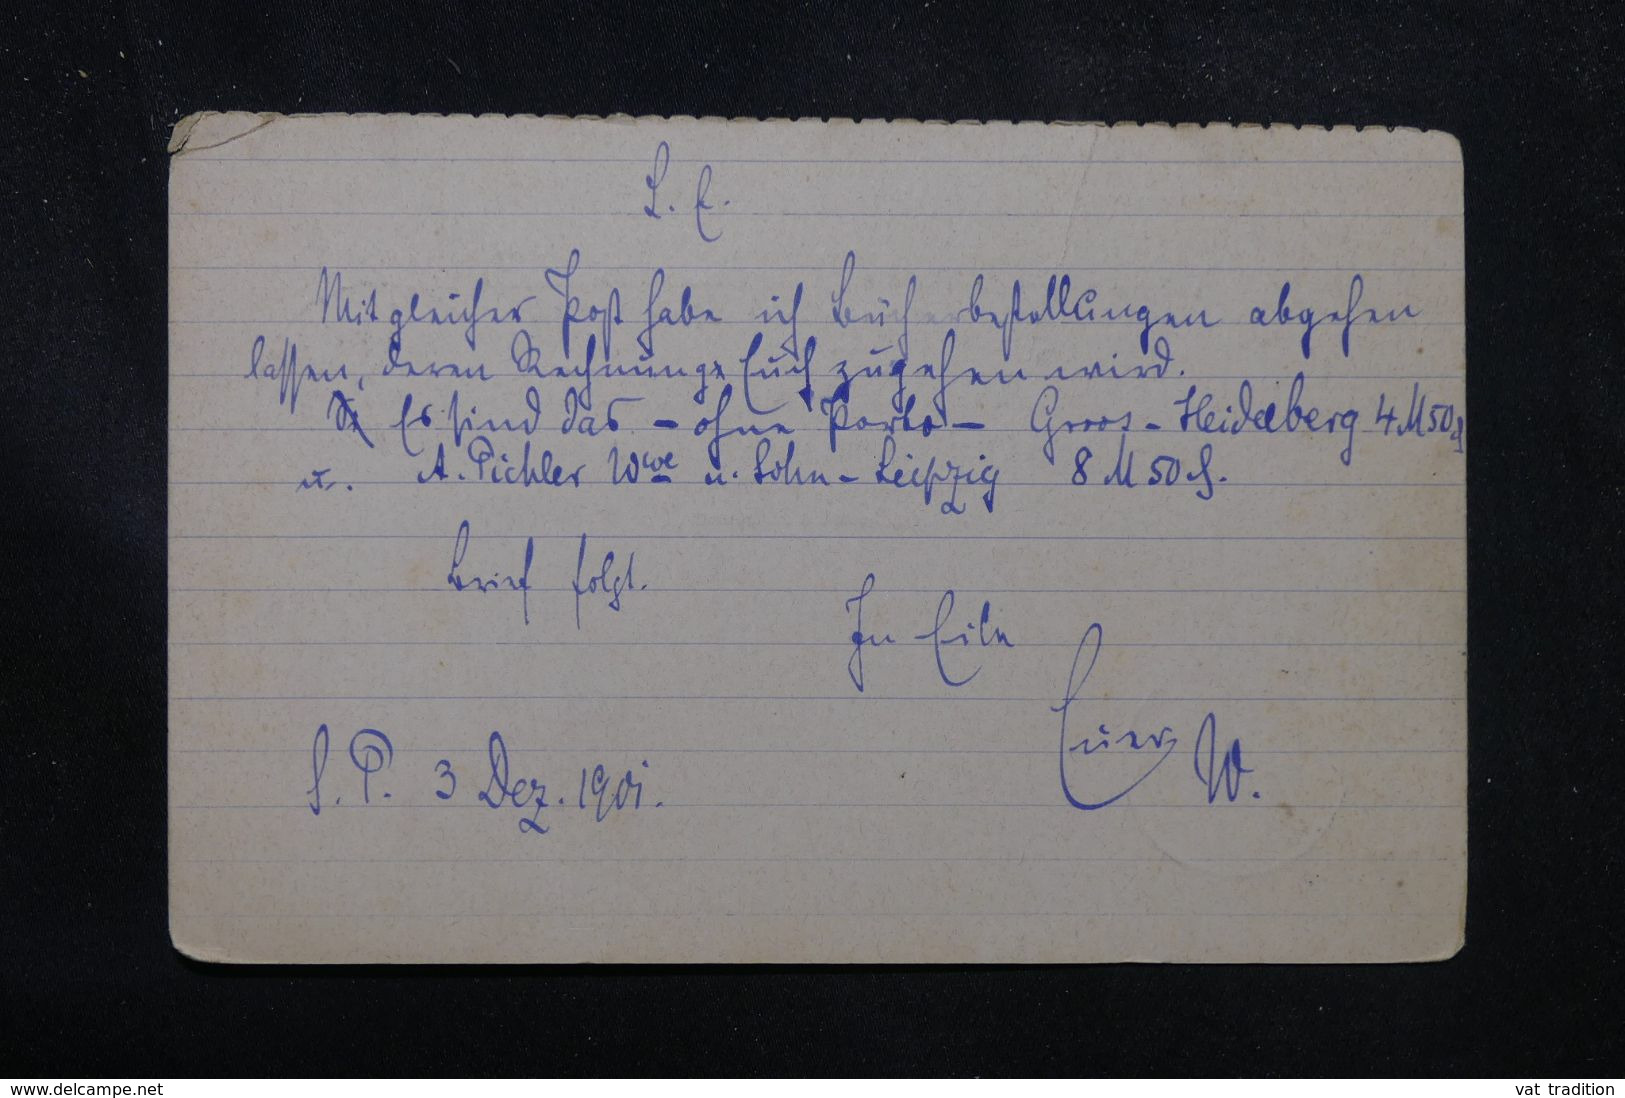 L. E.
Mit gleicher Post habe ich Bücherbestellungen abgehen
lassen, deren Rechnung Euch zugehen wird.
Es sind das – ohne Porto – Groos – Heidelberg 4 M 50 ₰
u. A. Pichler Wwe u. Sohn – Leipzig 8 M 50 ₰.
Brief folgt.
In Eile
Euer W.
S. P. 3 Dez. 1901.
delcampe.net
vat tradition